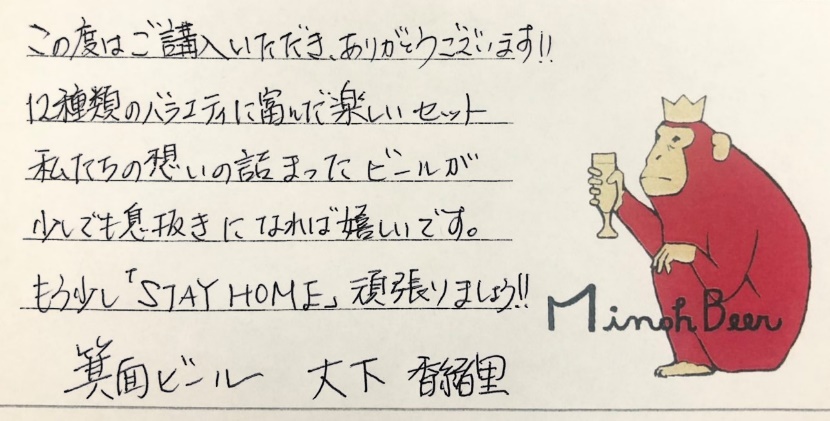 この度はご購入いただき、ありがとうございます!!
12種類のバラエティに富んだ楽しいセット
私たちの想いの詰まったビールが
少しでも息抜きになれば嬉しいです。
もう少し「STAY HOME」頑張りましょう!!
箕面ビール 大下 香緒里
Minoh Beer